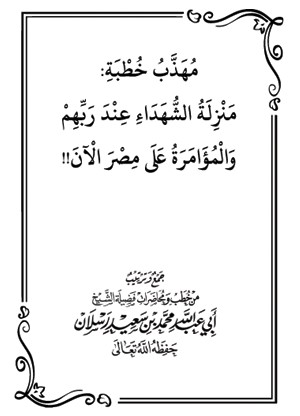 مُهَذَّبُ خُطْبَةِ:
مَنْزِلَةُ الشُّهَدَاءِ عِنْدَ رَبِّهِمْ
وَالْمُؤَامَرَةُ عَلَى مِصْرَ الْآنَ!!
جمع وترتيب
من خطب ومحاضرات فضيلة الشيخ
أبي عبد الله محمد بن سعيد رسلان
حفظه الله تعالى